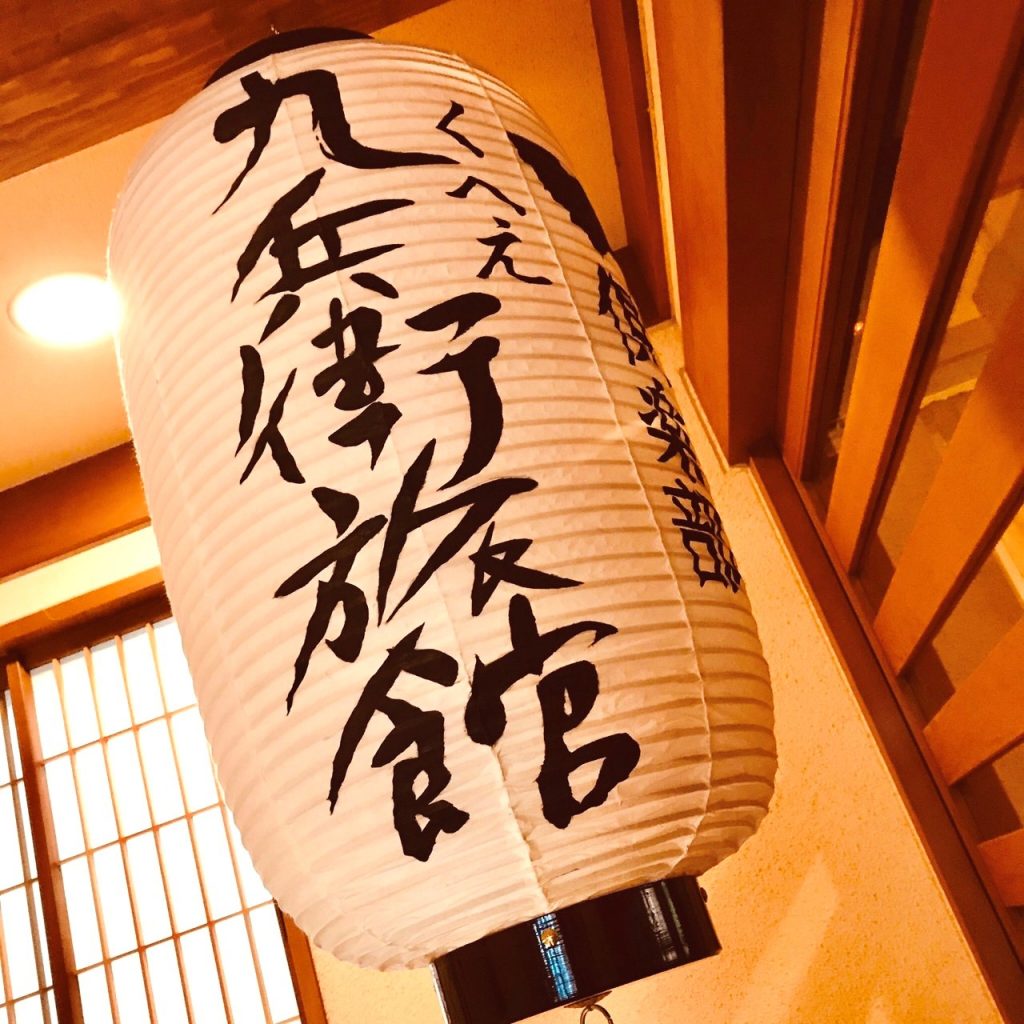 九兵衛旅館
くへえ
倶楽部